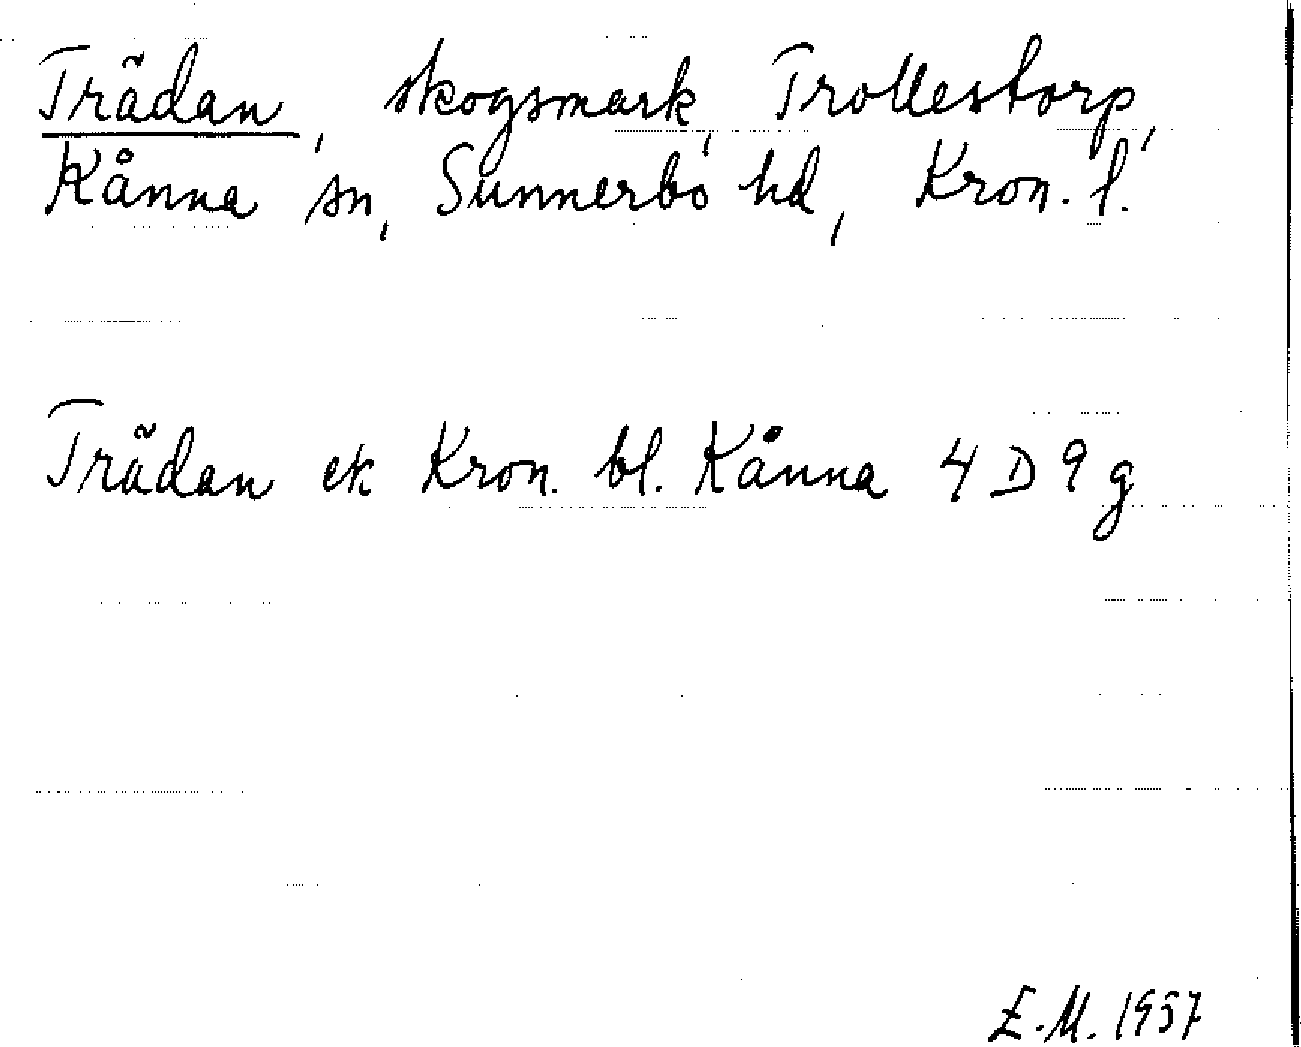 Trädan, skogsmark, Trollestorp,
Kånna sn, Sunnerbo hd, Kron. l.
Trädan ek Kron. bl. Kånna 4 D 9 g
E.M. 1957